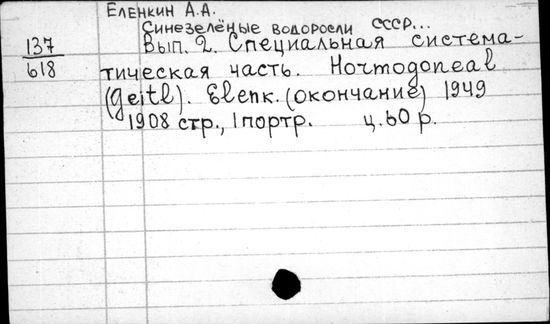 Еленкин А.А.
Синезелёные водоросли СССР...
137
618
Вып. 2. Специальная система-
тическая часть. Hormogoneal
(Geitl). Elenк. (окончание) 1949
1908 стр., 1 портр. ц. 60 р.